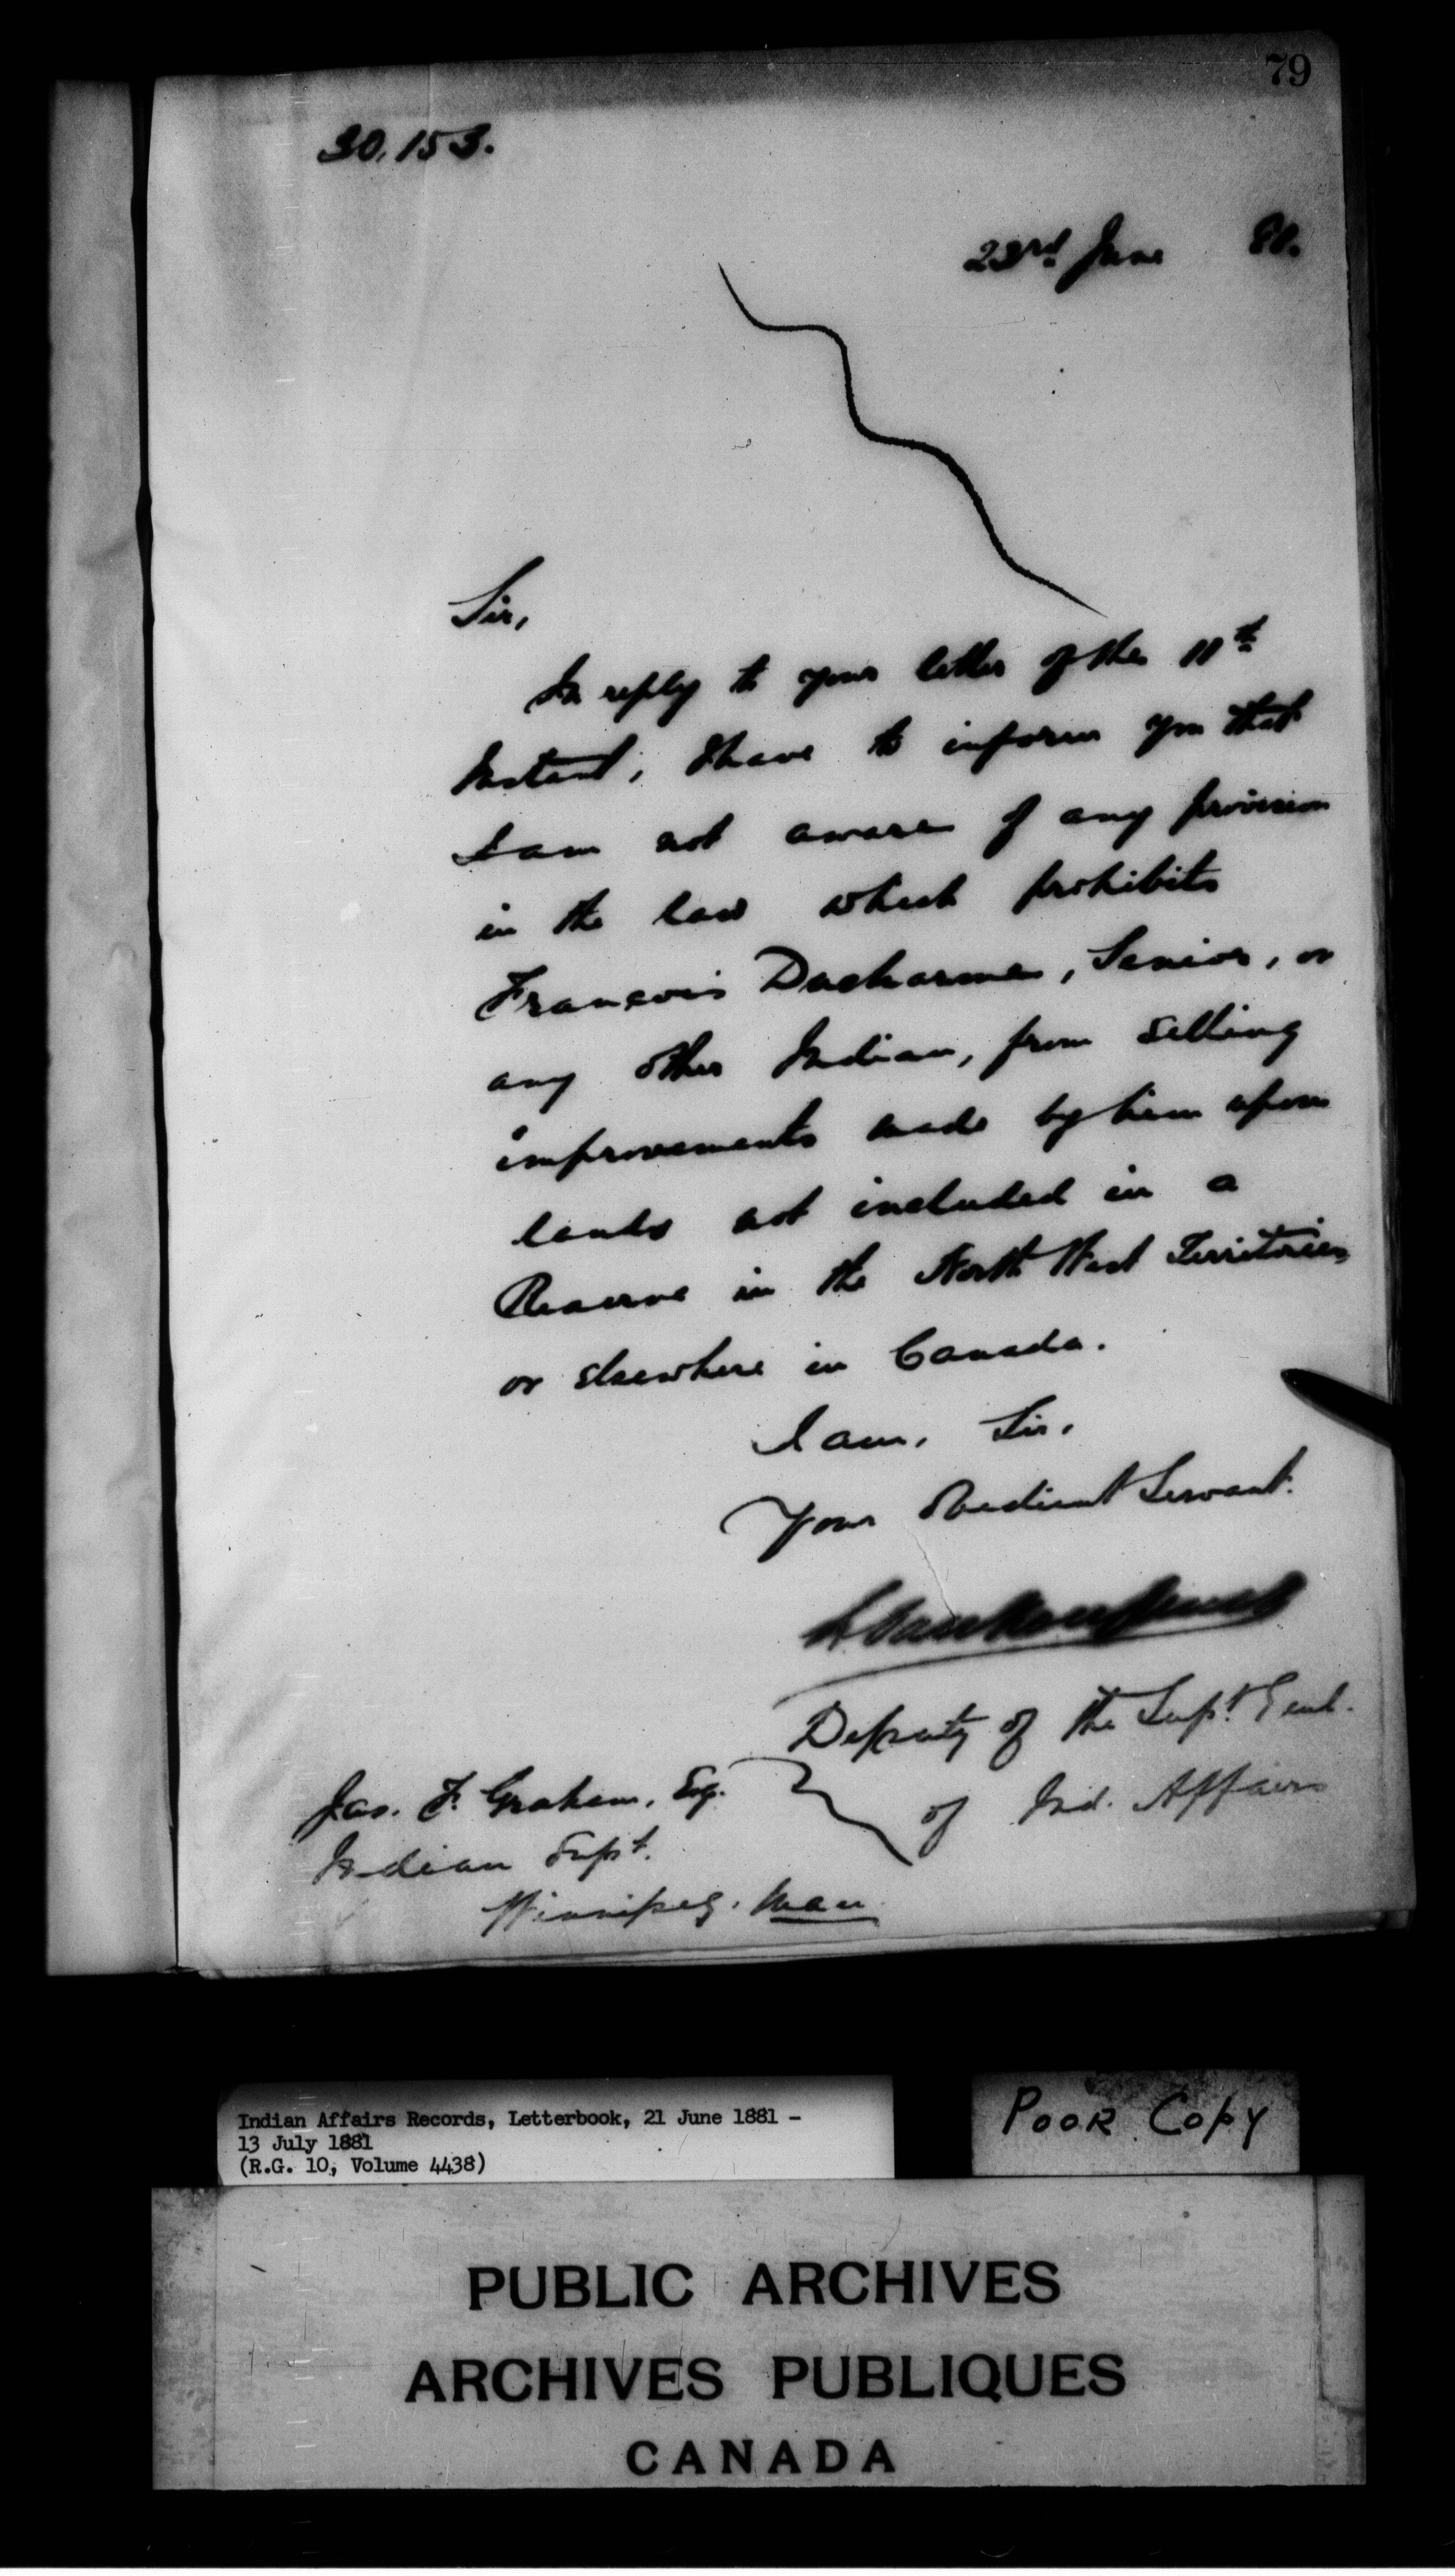 79
30,153.
23rd June 81.
Sir,
In reply to your letter of the 11th
Instant, I have to inform you that
I am not aware of any provision
in the law which prohibits
François Ducharme, Senior, or
any other Indian, from selling
improvements made by him upon
lands not included in a
Reserve in the North West Territories
or elsewhere in Canada.
I am, Sir,
Your Obedient Servant.
L Vankoughnet
Deputy of the Supt. Genl.
of Ind. Affairs
Jas. F. Graham, Esq.
Indian Supt.
Winnipeg, Man
Indian Affairs Records, Letterbook, 21 June 1881 -
13 July 1881
(R.G. 10, Volume 4438)
POOR COPY
PUBLIC ARCHIVES
ARCHIVES PUBLIQUES
CANADA